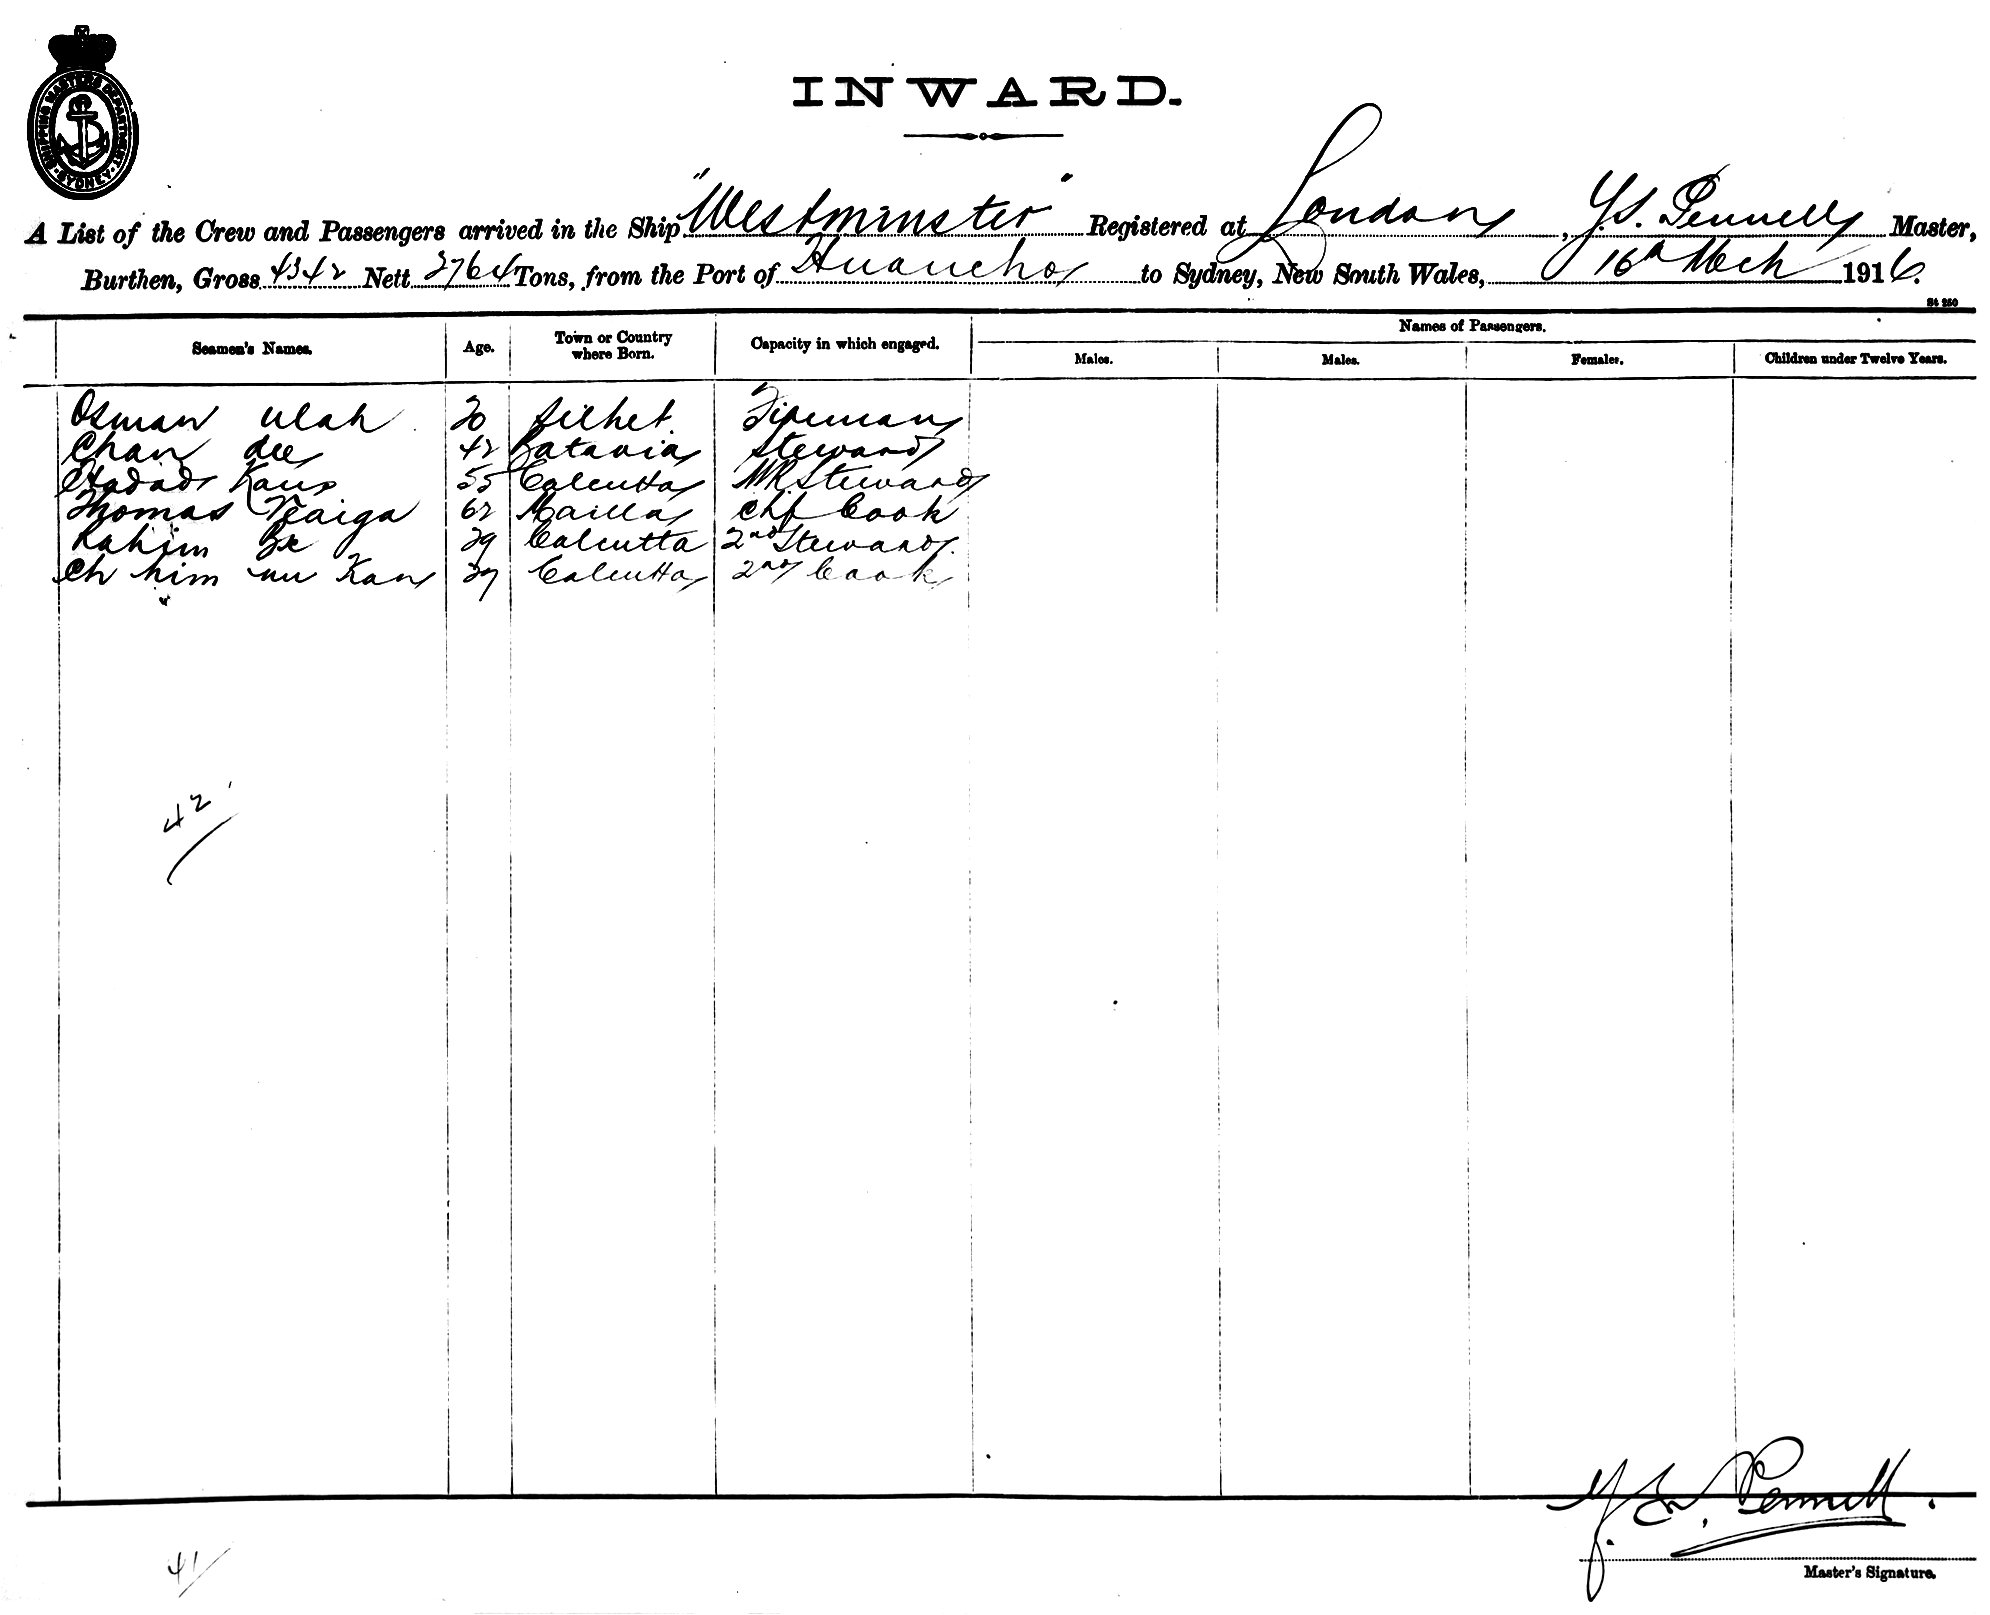 SHIPPING MASTERS DEPARTMENT SYDNEY
INWARD.
A List of the Crew and Passengers arrived in the Ship "Westminster" Registered at London, J.S. Pennell Master,
Burthen, Gross 4342 Nett 2764 Tons, from the Port of Huancho to Sydney, New South Wales, 16th Mch 1916.
S4 250
Names of Passengers.
Seamen's Names. Age. Town or Country where Born. Capacity in which engaged. Males. Males. Females. Children under Twelve Years.
Osman Ulah 30 Silhet. Fireman
Chan 42 Batavia Steward
55 Calcutta MR Steward
Thomas 62 Chf Cook
Rahim Bx 29 Calcutta 2nd Steward.
Kan Calcutta 2nd Cook
42
J. S. Pennell.
41
Master's Signature.